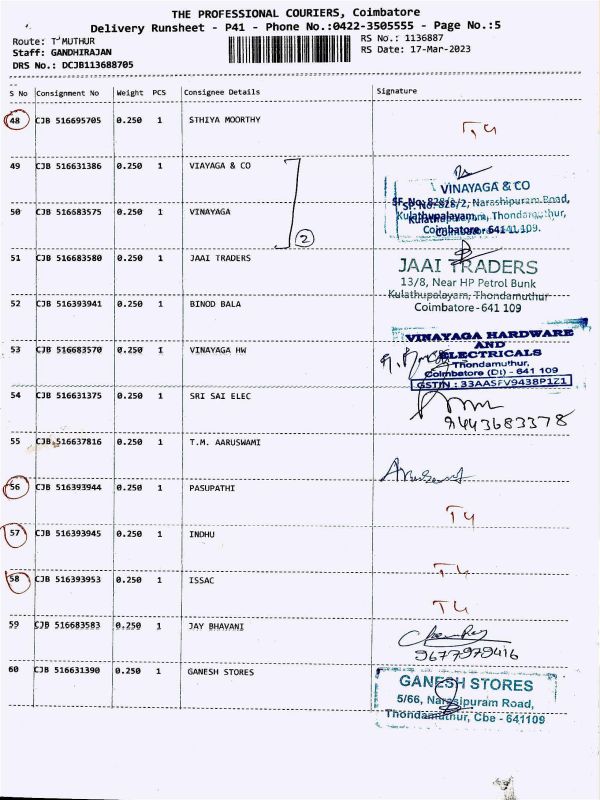 THE PROFESSIONAL COURIERS, Coimbatore
Delivery Runsheet - P41 - Phone No.:0422-3505555 - Page No.:5
Route: T'MUTHUR
RS No.: 1136887
Staff: GANDHIRAJAN
RS Date: 17-Mar-2023
DRS No.: DCJB113688705
S No Consignment No Weight PCS Consignee Details Signature
48 CJB 516695705 0.250 1 STHIYA MOORTHY
49 CJB 516631386 0.250 1 VIAYAGA & CO
VINAYAGA & CO
SF. No: 828/8/2, Narashipuram Road,
50 CJB 516683575 0.250 1 VINAYAGA
Kulathupalayam, Thondamuthur,
Coimbatore - 641 109.
2
51 CJB 516683580 0.250 1 JAAI TRADERS
JAAI TRADERS
13/8, Near HP Petrol Bunk
Kulathupalayam, Thondamuthur
52 CJB 516393941 0.250 1 BINOD BALA
Coimbatore-641 109
53 CJB 516683570 0.250 1 VINAYAGA HW
VINAYAGA HARDWARE
AND
ELECTRICALS
Thondamuthur,
Coimbatore (Dt) - 641 109
GSTIN : 33AASFV9438P1Z1
54 CJB 516631375 0.250 1 SRI SAI ELEC
9443683378
55 CJB 516637816 0.250 1 T.M. AARUSWAMI
56 CJB 516393944 0.250 1 PASUPATHI
57 CJB 516393945 0.250 1 INDHU
58 CJB 516393953 0.250 1 ISSAC
59 CJB 516683583 0.250 1 JAY BHAVANI
9677979416
60 CJB 516631390 0.250 1 GANESH STORES
GANESH STORES
5/66, Narasipuram Road,
Thondamuthur, Cbe - 641109